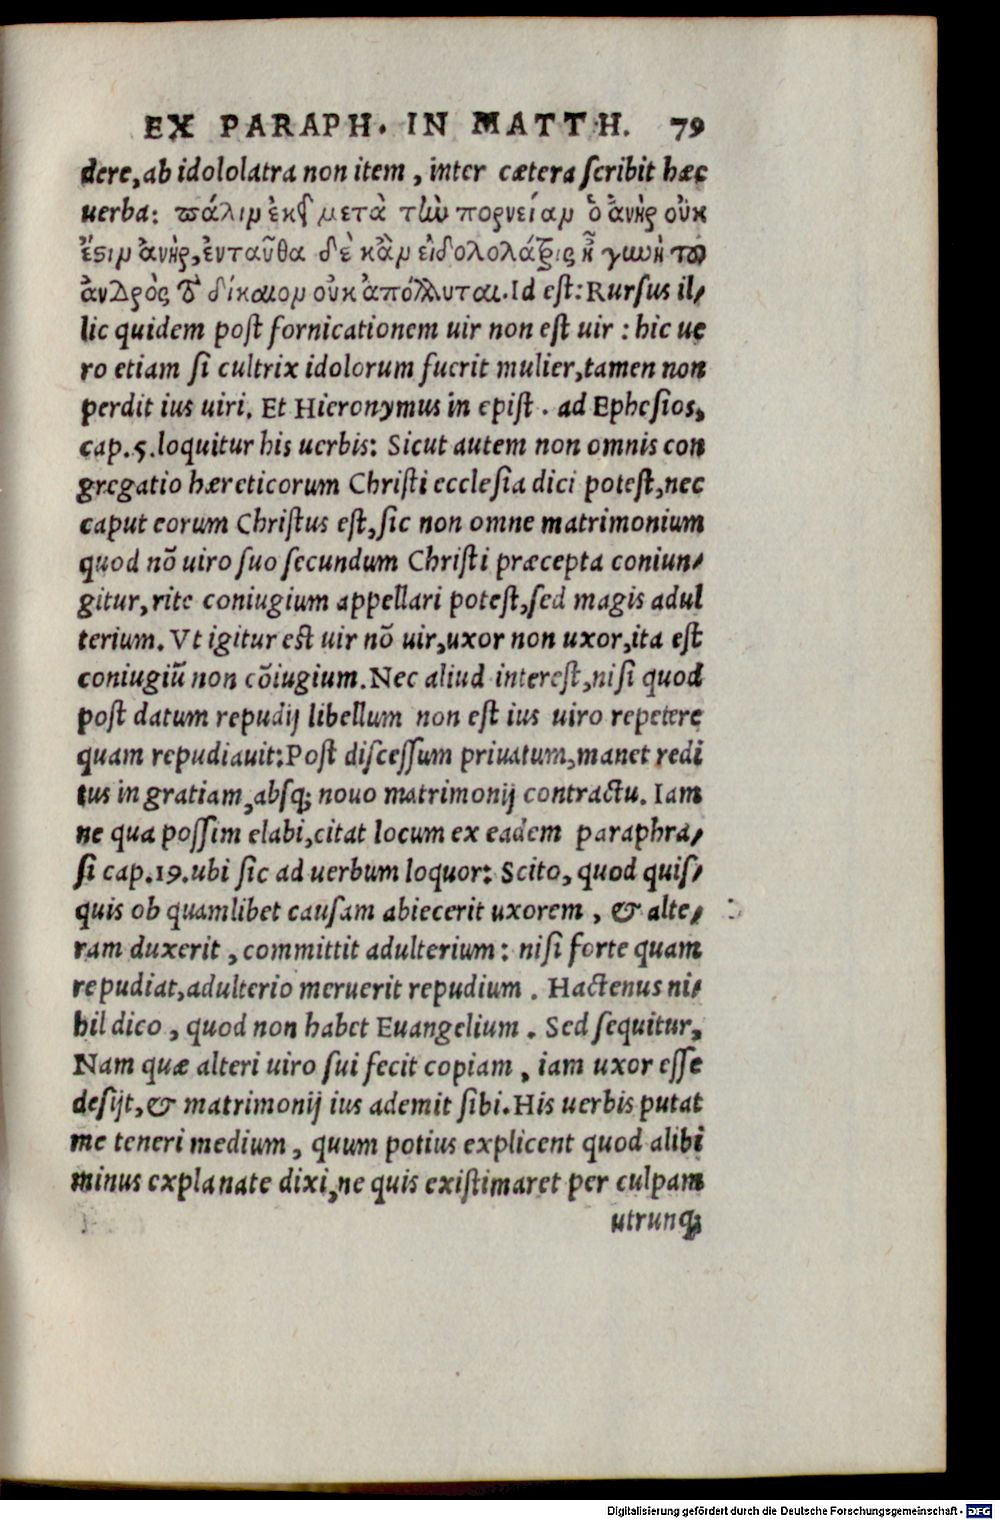 EX PARAPH. IN MATTH. 79
dere, ab idololatra non item, inter cætera scribit hæc
uerba: πάλιν ἐκεῖ μετὰ τὴν πορνείαν ὁ ἀνὴρ οὐκ
ἔστιν ἀνὴρ, ἐνταῦθα δὲ κἂν εἰδολολάτρις ᾖ γυνὴ τὸ
ἀνδρὸς τὸ δίκαιον οὐκ ἀπόλλυται. Id est: Rursus il-
lic quidem post fornicationem uir non est uir: hic ue
ro etiam si cultrix idolorum fuerit mulier, tamen non
perdit ius uiri. Et Hieronymus in epist. ad Ephesios,
cap. 5. loquitur his uerbis: Sicut autem non omnis con
gregatio hæreticorum Christi ecclesia dici potest, nec
caput eorum Christus est, sic non omne matrimonium
quod nõ uiro suo secundum Christi præcepta coniun-
gitur, rite coniugium appellari potest, sed magis adul
terium. Vt igitur est uir nõ uir, uxor non uxor, ita est
coniugiũ non cõiugium. Nec aliud interest, nisi quod
post datum repudij libellum non est ius uiro repetere
quam repudiauit: Post discessum priuatum, manet redi
tus in gratiam, absq; nouo matrimonij contractu. Iam
ne qua possim elabi, citat locum ex eadem paraphra-
si cap. 19. ubi sic ad uerbum loquor: Scito, quod quis-
quis ob quamlibet causam abiecerit uxorem, & alte-
ram duxerit, committit adulterium: nisi forte quam
repudiat, adulterio meruerit repudium. Hactenus ni-
hil dico, quod non habet Euangelium. Sed sequitur,
Nam quæ alteri uiro sui fecit copiam, iam uxor esse
desijt, & matrimonij ius ademit sibi. His uerbis putat
me teneri medium, quum potius explicent quod alibi
minus explanate dixi, ne quis existimaret per culpam
utrunq;
Digitalisierung gefördert durch die Deutsche Forschungsgemeinschaft - DFG